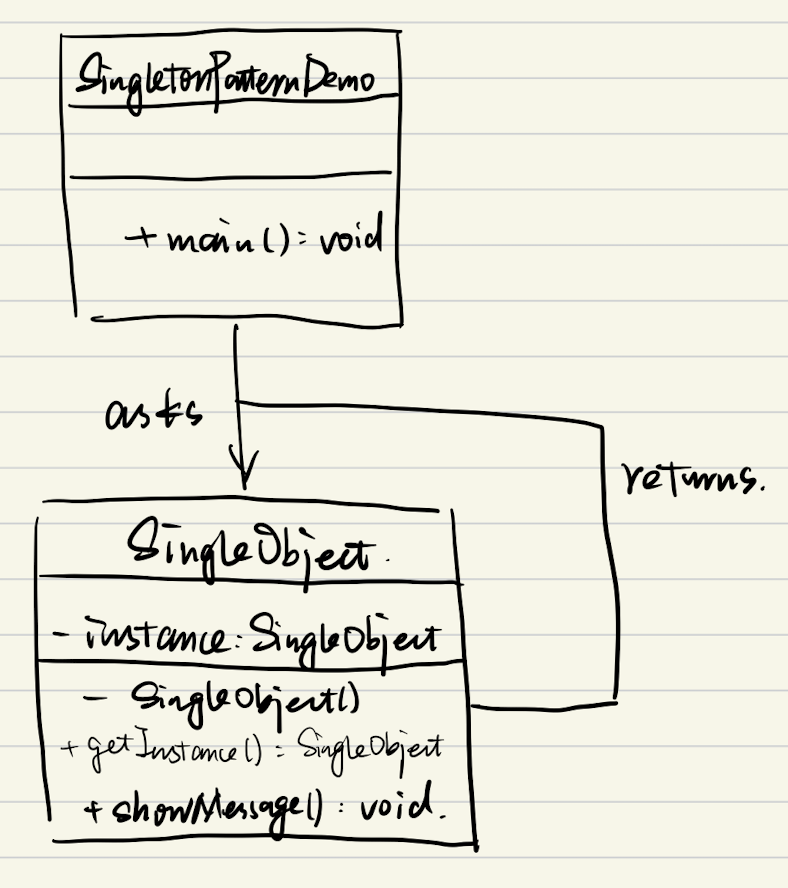 SingletonPatternDemo
+ main() : void
asks
returns.
SingleObject.
- instance: SingleObject
- SingleObject()
+ getInstance() : SingleObject
+ showMessage() : void.